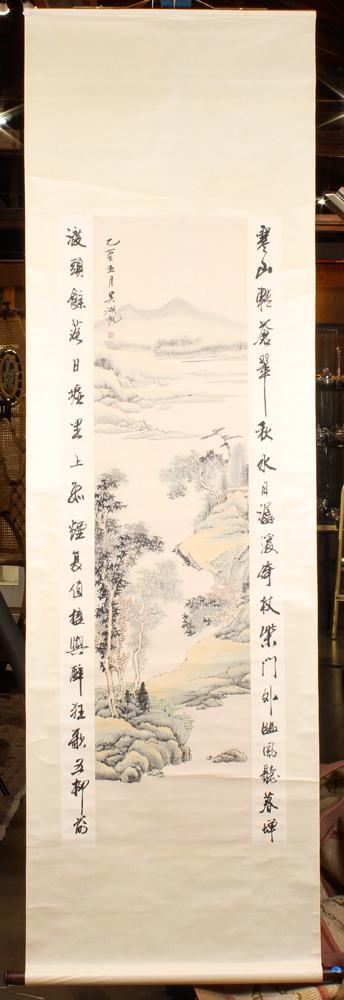 寒山轉蒼翠秋水日潺湲倚杖柴門外臨風聽暮蟬
渡頭餘落日墟里上孤煙復值接輿醉狂歌五柳前
乙酉五月吳湖帆